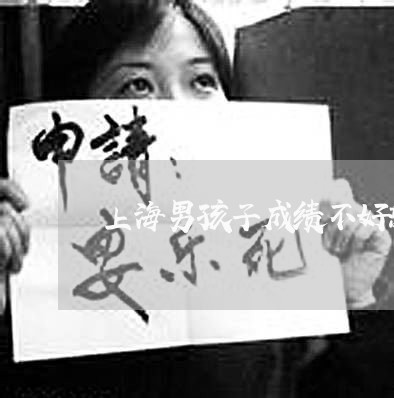 申請:
上海男孩子成绩不好
安乐死